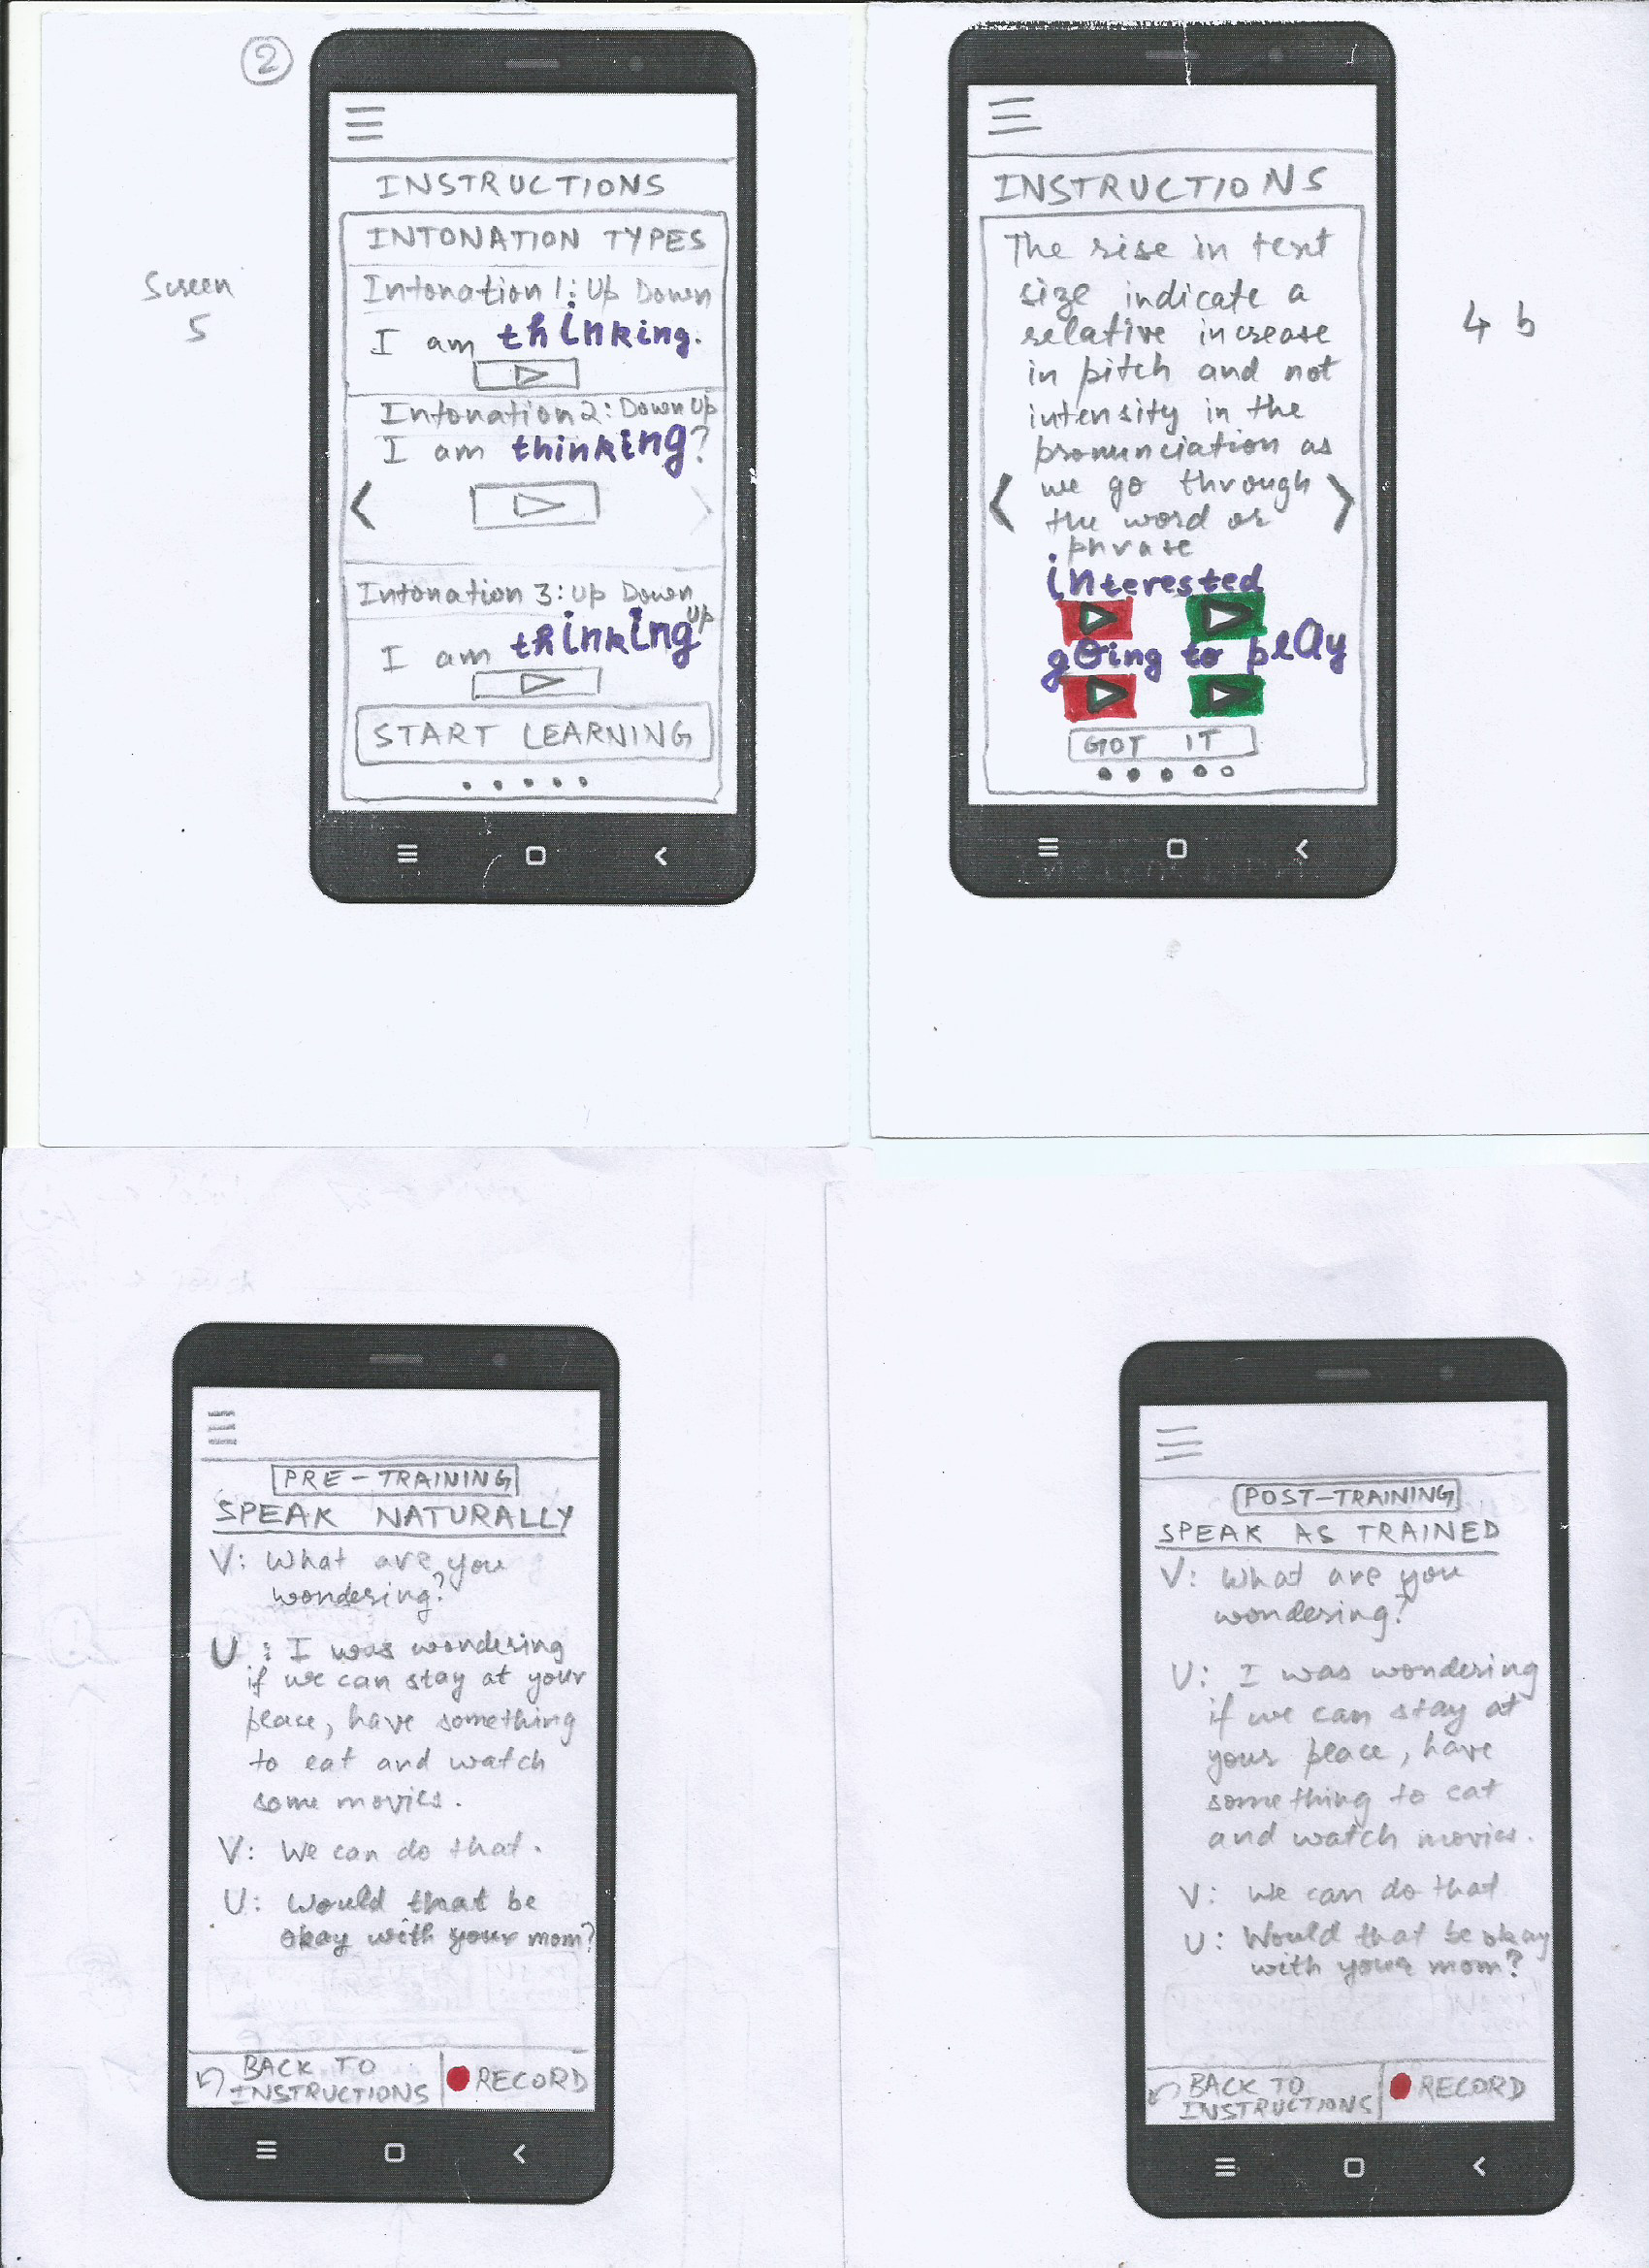 2
Screen
5
INSTRUCTIONS
INTONATION TYPES
Intonation 1: Up Down
I am thinking.
Intonation 2: Down Up
I am thinking?
Intonation 3: Up Down
Up
I am thinking
START LEARNING
4 b
INSTRUCTIONS
The rise in text
size indicate a
relative increase
in pitch and not
intensity in the
pronunciation as
we go through
the word or
phrase
interested
going to play
GOT IT
PRE-TRAINING
SPEAK NATURALLY
V: What are you
wondering?
U: I was wondering
if we can stay at your
place, have something
to eat and watch
some movies.
V: We can do that.
U: Would that be
okay with your mom?
BACK TO
INSTRUCTIONS
RECORD
POST-TRAINING
SPEAK AS TRAINED
V: What are you
wondering?
U: I was wondering
if we can stay at
your place, have
something to eat
and watch movies.
V: We can do that
U: Would that be okay
with your mom?
BACK TO
INSTRUCTIONS
RECORD